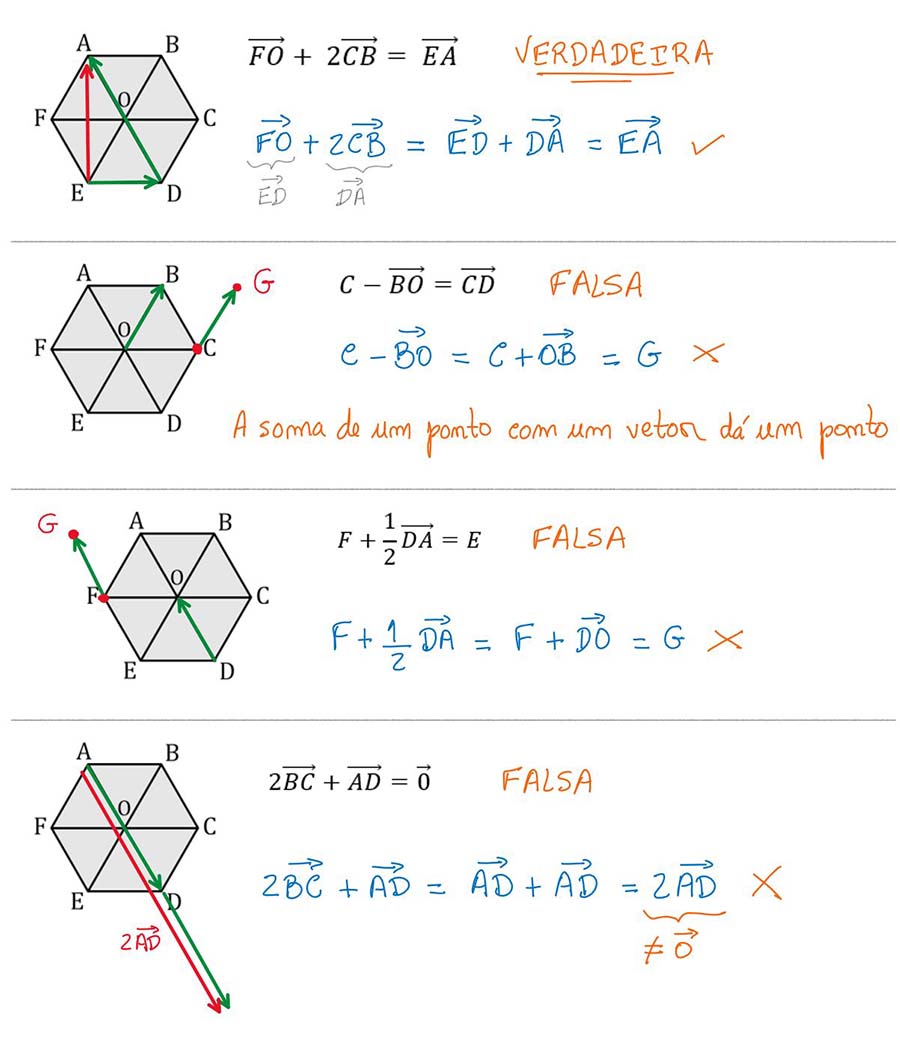 A B
F O C
E D
$\overrightarrow{FO} + 2\overrightarrow{CB} = \overrightarrow{EA}$ VERDADEIRA
$\overrightarrow{FO} + 2\overrightarrow{CB} = \overrightarrow{ED} + \overrightarrow{DA} = \overrightarrow{EA}$ ✓
$\overrightarrow{ED}$ $\overrightarrow{DA}$
A B G
F O C
E D
$C - \overrightarrow{BO} = \overrightarrow{CD}$ FALSA
$C - \overrightarrow{BO} = C + \overrightarrow{OB} = G$ ✗
A soma de um ponto com um vetor dá um ponto
G A B
F O C
E D
$F + \frac{1}{2}\overrightarrow{DA} = E$ FALSA
$F + \frac{1}{2}\overrightarrow{DA} = F + \overrightarrow{DO} = G$ ✗
A B
F O C
E D
$2\overrightarrow{AD}$
$2\overrightarrow{BC} + \overrightarrow{AD} = \vec{0}$ FALSA
$2\overrightarrow{BC} + \overrightarrow{AD} = \overrightarrow{AD} + \overrightarrow{AD} = 2\overrightarrow{AD}$ ✗
$\neq \vec{0}$